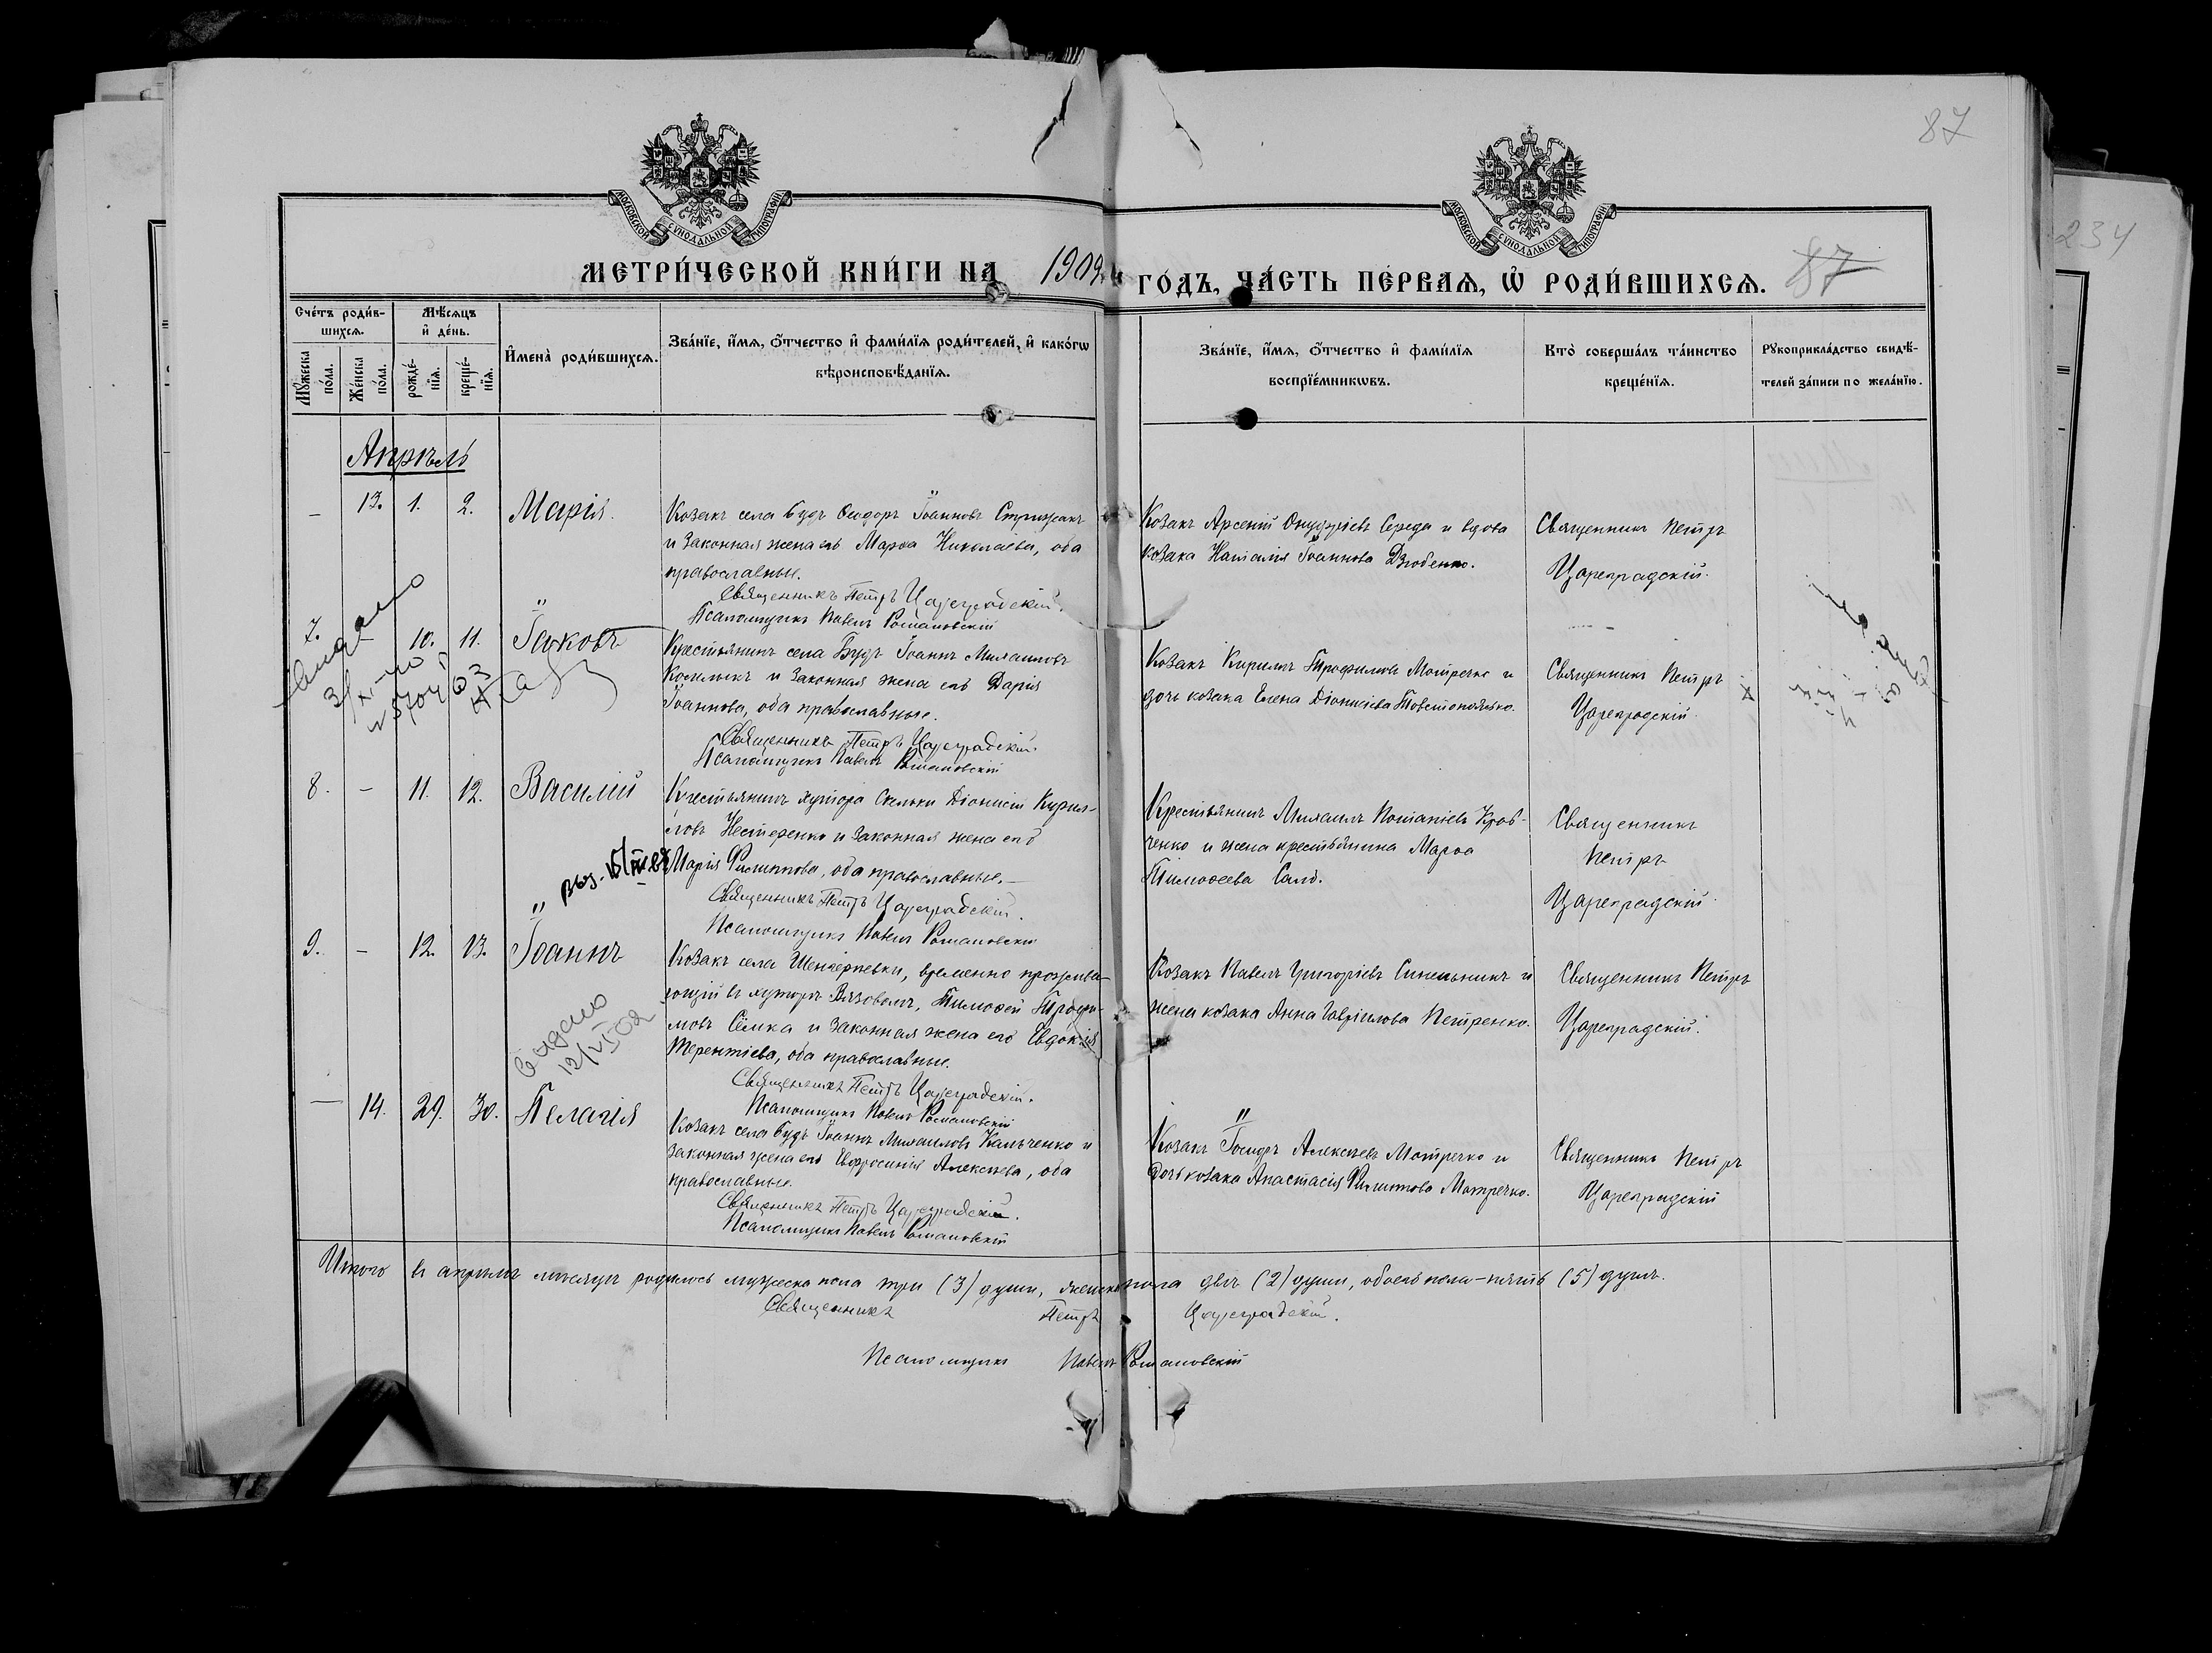 87
87
234
МОСКОВСКОЙ СѴНОДАЛЬНОЙ ТИПОГРАФІИ
МОСКОВСКОЙ СѴНОДАЛЬНОЙ ТИПОГРАФІИ
МЕТРИ́ЧЕСКОЙ КНИ́ГИ НА 1909й ГОДЪ, ЧА́СТЬ ПЕ́РВАѦ, Ѽ РОДИ́ВШИХСѦ.
Счётъ роди́в-
шихсѧ.
Мꙋ́жеска по́ла.
Же́нска по́ла.
Мѣ́сѧцъ
и҆ де́нь.
рожде́-
нїѧ.
креще́-
нїѧ.
И҆мена̀ роди́вшихсѧ.
Зва́нїе, и҆́мѧ, ѻ҆́тчество и҆ фами́лїѧ роди́телей, и҆ како́гѡ
вѣроисповѣ́данїѧ.
Зва́нїе, и҆́мѧ, ѻ҆́тчество и҆ фами́лїѧ
воспрїе́мникѡвъ.
Кто̀ соверша́лъ та́инство
креще́нїѧ.
Рꙋкоприкла́дство свидѣ́-
телей за́писи по жела́нїю.
Апрѣль
– 13. 1. 2. Марія.
Козакъ села Будъ Ѳеодоръ Іоанновъ Стрижакъ
и законная жена его Марѳа Николаева, оба
православные.
Священникъ Петръ Цареградскій.
Псаломщикъ Павелъ Романовскій
Козакъ Арсеній Онуфріевъ Середа и вдова
козака Наталія Іоаннова Дзюбенко.
Священникъ Петръ
Цареградскій.
7. – 10. 11. Іаковъ
Видано
Крестьянинъ села Будъ Іоаннъ Михаиловъ
и законная жена его Дарія
Іоаннова, оба православные.
Священникъ Петръ Цареградскій.
Псаломщикъ Павелъ Романовскій
Козакъ Кириллъ Трофимовъ Мотречко и
дочь козака Елена Діонисіева
Священникъ Петръ
Цареградскій.
8. – 11. 12. Василій
Крестьянинъ хутора Скельки Діонисій Кирил-
ловъ Нестеренко и законная жена его
Марія Филиппова, оба православные.–
Священникъ Петръ Цареградскій.
Псаломщикъ Павелъ Романовскій
Крестьянинъ Михаилъ Потапіевъ Крав-
ченко и жена крестьянина Марѳа
Тимоѳеева Сало.
Священникъ
Петръ
Цареградскій.
9. – 12. 13. Іоаннъ
Видано
Козакъ села Шендеревки, временно прожива-
ющій въ хуторѣ Вязовомъ, Тимоѳей Трофи-
мовъ Сёмка и законная жена его Евдокія
Терентіева, оба православные.
Священникъ Петръ Цареградскій.
Псаломщикъ Павелъ Романовскій
Козакъ Павелъ Григоріевъ Синельникъ и
жена козака Анна Гавріилова Петренко.
Священникъ Петръ
Цареградскій.
– 14. 29. 30. Пелагія
Козакъ села Будъ Іоаннъ Михаиловъ Кальченко и
законная жена его Евфросинія Алексѣева, оба
православные.
Священникъ Петръ Цареградскій.
Псаломщикъ Павелъ Романовскій
Козакъ Іосифъ Алексѣевъ Мотречко и
дочь козака Анастасія Филиппова Мотречко.
Священникъ Петръ
Цареградскій
Итого въ апрѣлѣ мѣсяцѣ родилось мужеска пола три (3) души, женска пола двѣ (2) души, обоего пола – пять (5) душъ.
Священникъ Петръ Цареградскій.
Псаломщикъ Павелъ Романовскій